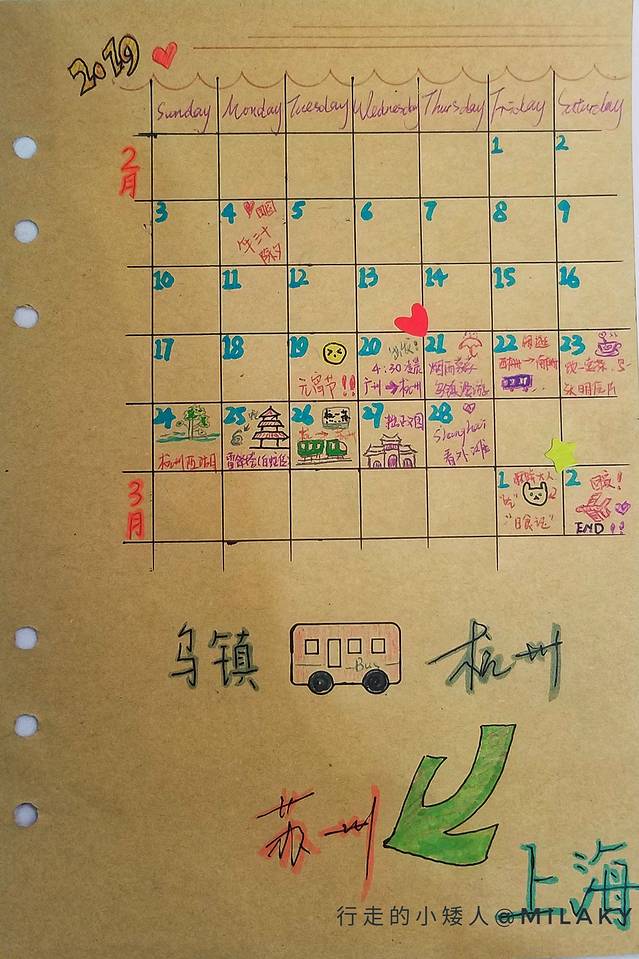 2019
Sunday Monday Tuesday Wednesday Thursday Friday Saturday
2月
1 2
3 4 5 6 7 8 9
年三十
除夕
10 11 12 13 14 15 16
17 18 19 20 21 22 23
元宵节!!
出发!
4:30
广州→杭州
烟雨
乌镇
西栅→
24 25 26 27 28
杭州西湖
雷峰塔(白蛇
杭→
拙政园
Shanghai
看外滩
3月
1 2
"日食记"
回家!
END!!
乌镇
Bus
杭州
苏州
上海
行走的小矮人@MILAKY